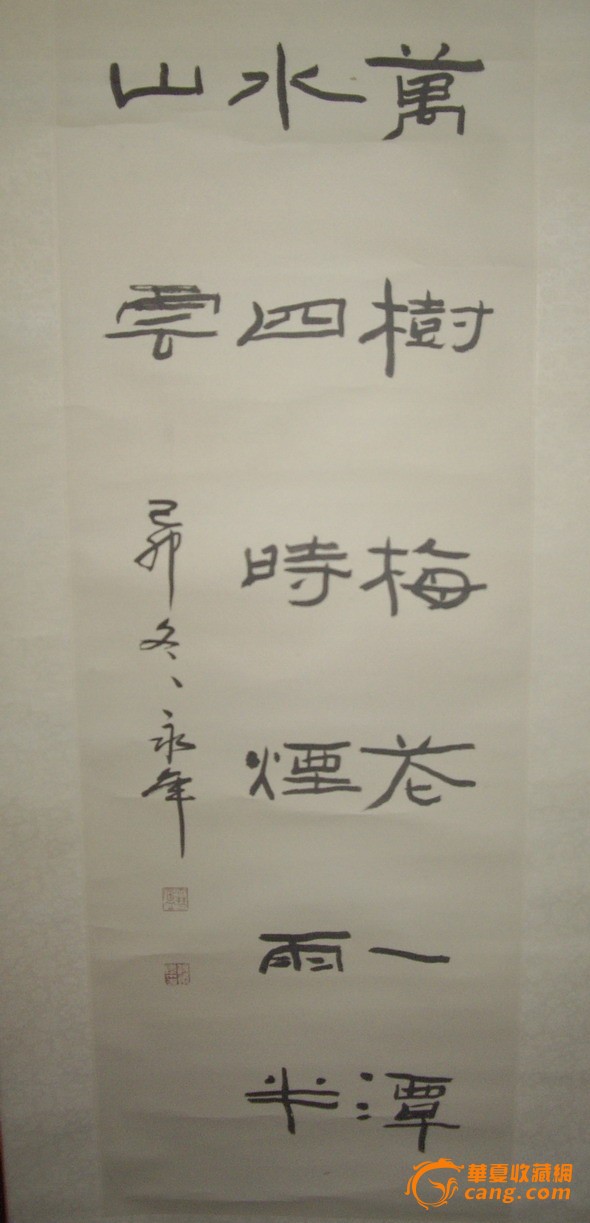 萬樹梅花一潭
水四時煙雨半
山雲
己卯冬、永年
華夏收藏網
cang.com